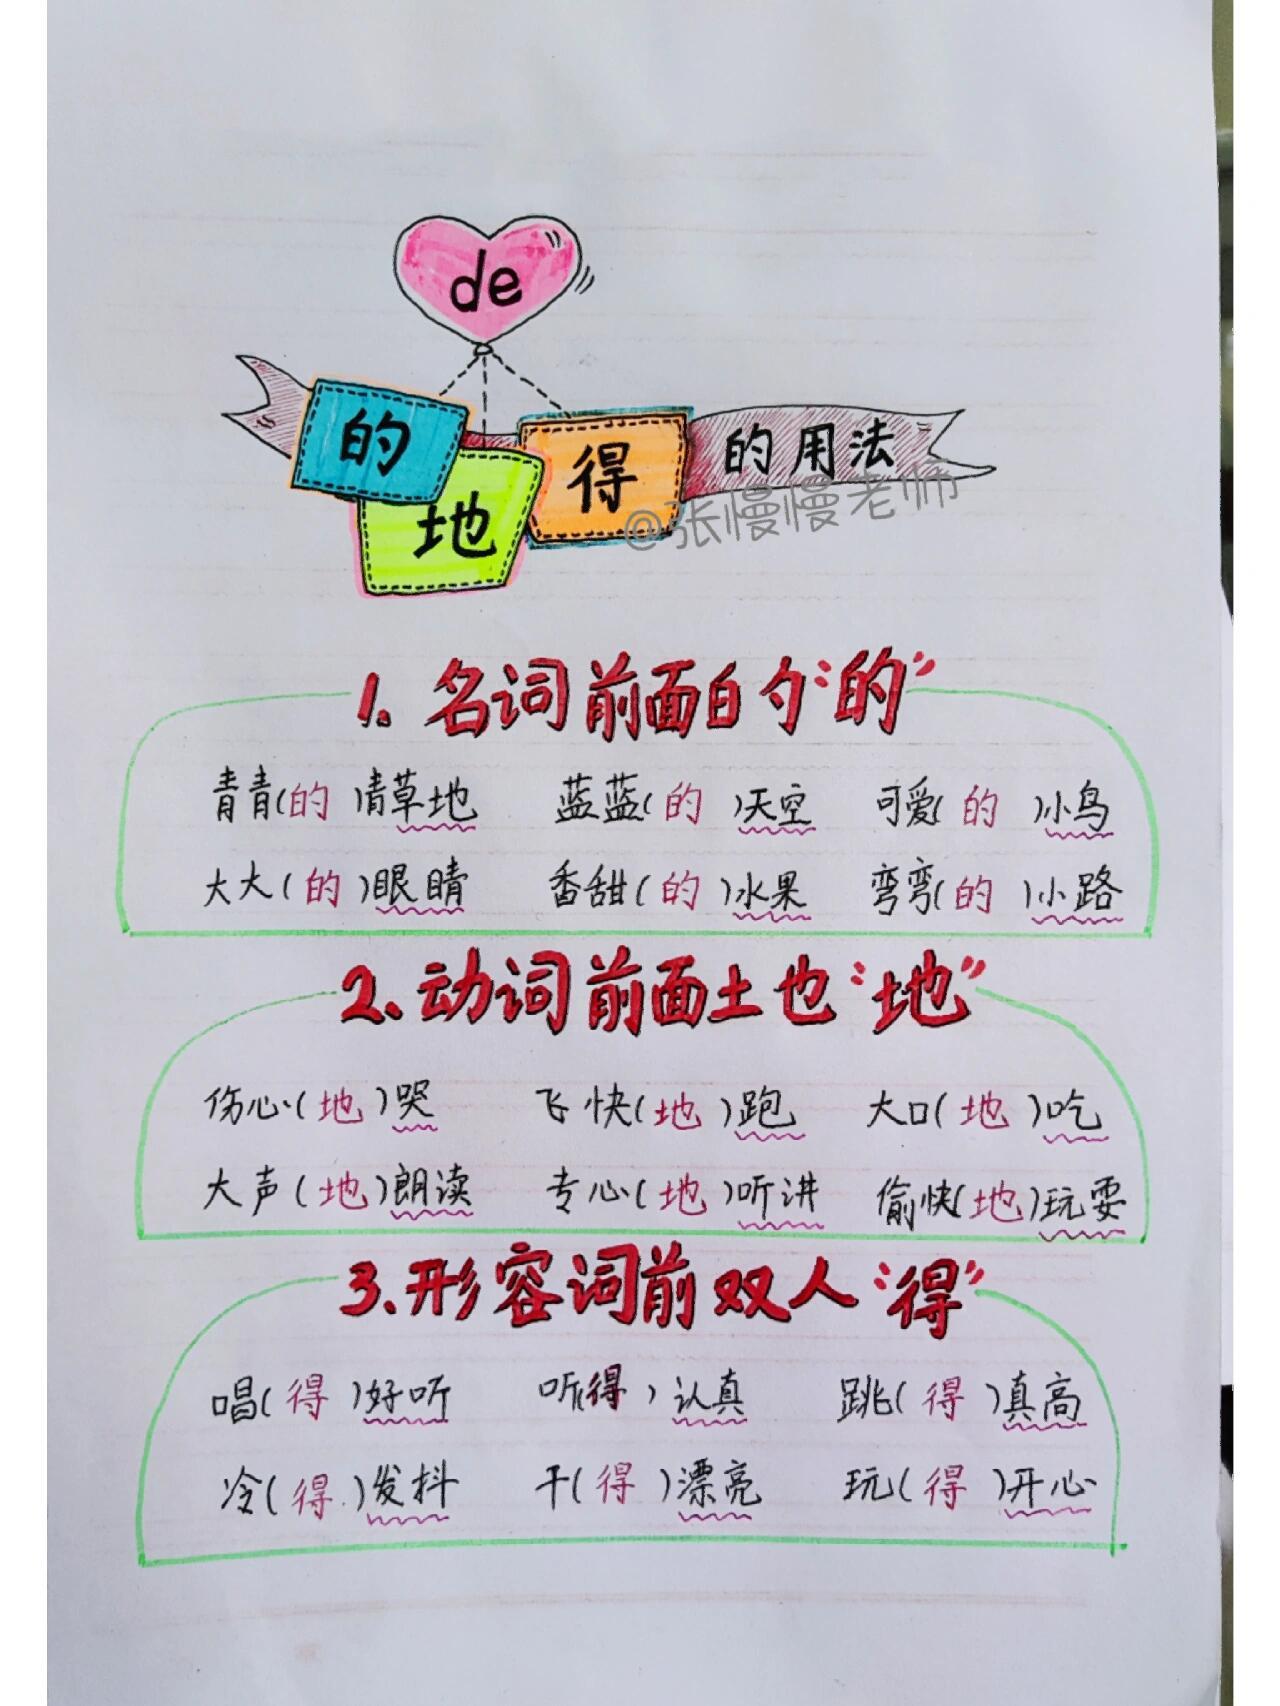 de
的
地
得
的用法
@张慢慢老师
1.名词前面白勺“的”
青青(的)青草地 蓝蓝(的)天空 可爱(的)小鸟
大大(的)眼睛 香甜(的)水果 弯弯(的)小路
2.动词前面土也“地”
伤心(地)哭 飞快(地)跑 大口(地)吃
大声(地)朗读 专心(地)听讲 偷快(地)玩耍
3.形容词前双人“得”
唱(得)好听 听(得)认真 跳(得)真高
冷(得)发抖 干(得)漂亮 玩(得)开心